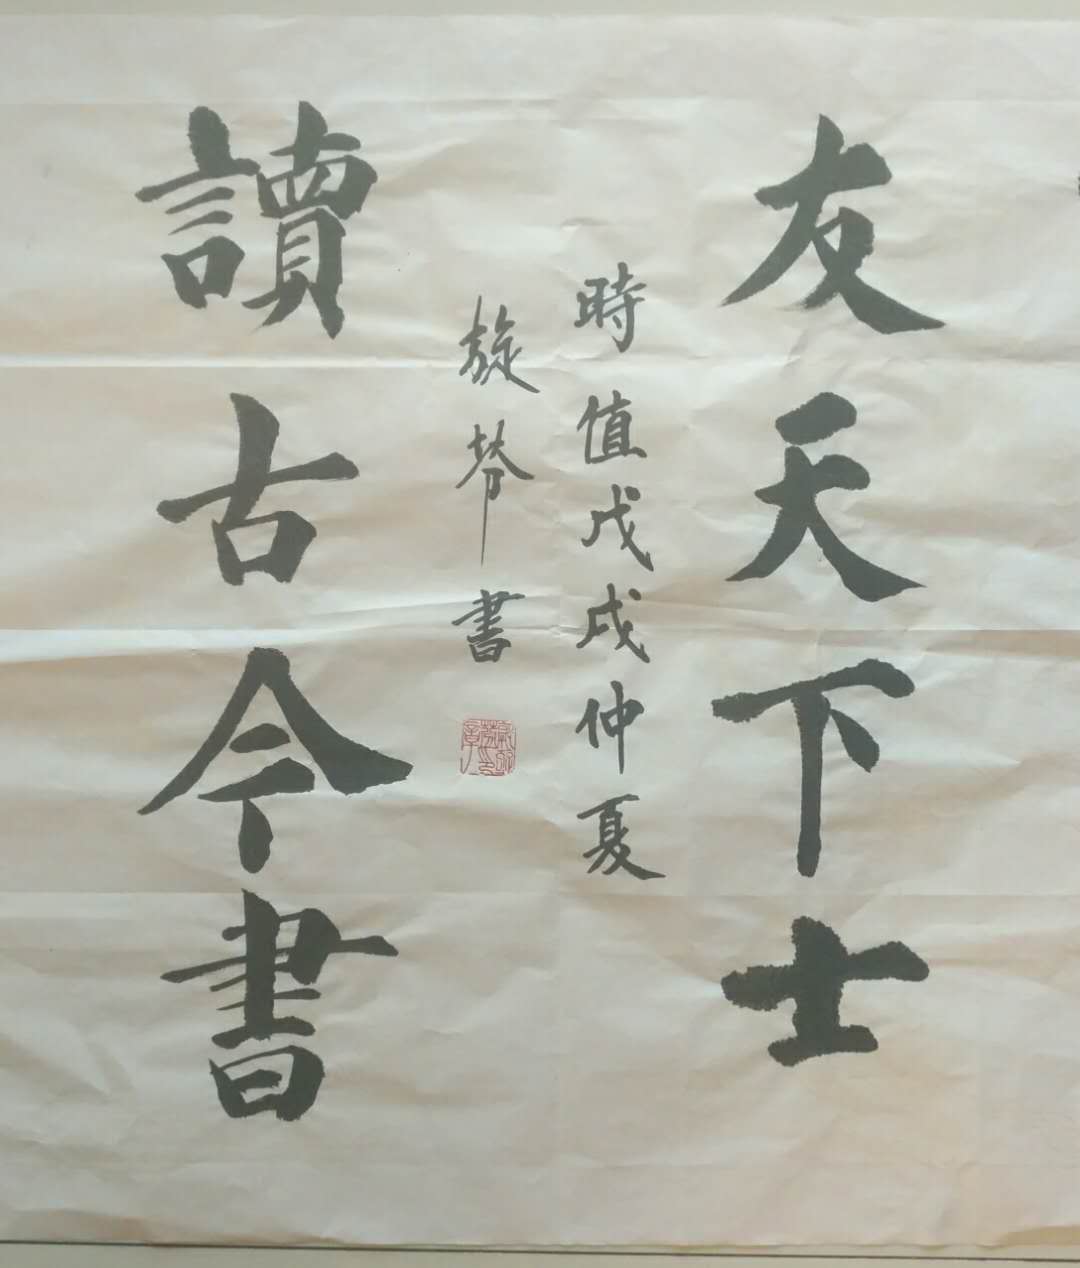 友天下士
時值戊戌仲夏
旋
書
讀古今書